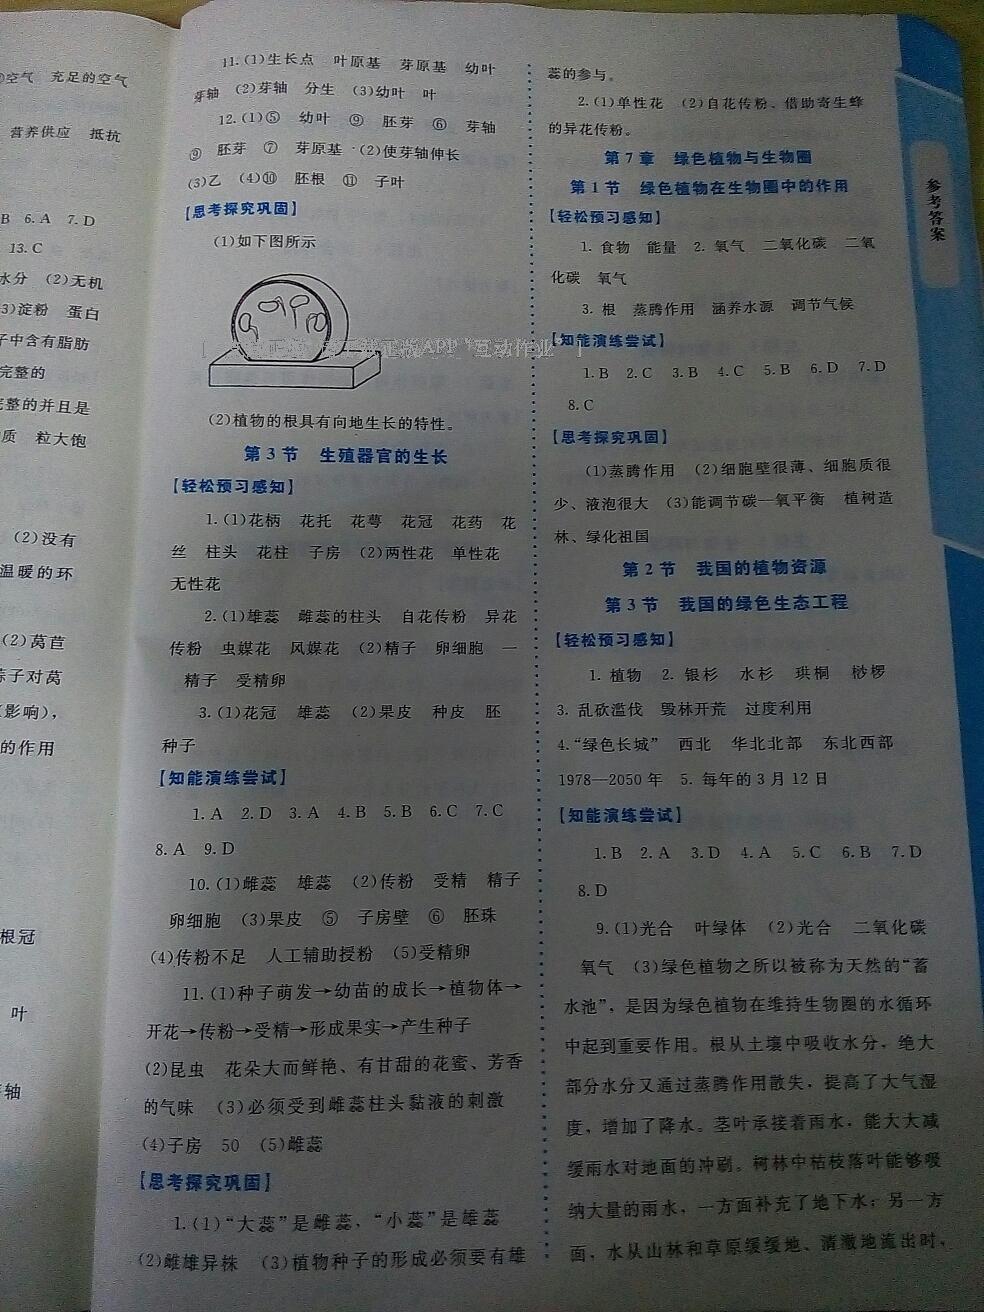 空气　充足的空气
营养供应　抵抗
B　6.A　7.D
13.C
水分　(2)无机
3)淀粉　蛋白
子中含有脂肪
完整的
完整的并且是
质　粒大饱
(2)没有
温暖的环
(2)莴苣
子对莴
影响),
的作用
根冠
叶
轴
11.(1)生长点　叶原基　芽原基　幼叶
芽轴　(2)芽轴　分生　(3)幼叶　叶
12.(1)⑤　幼叶　⑨　胚芽　⑥　芽轴
⑨　胚芽　⑦　芽原基　(2)使芽轴伸长
(3)乙　(4)⑩　胚根　⑪　子叶
【思考探究巩固】
(1)如下图所示
正版APP“互动作业”
(2)植物的根具有向地生长的特性。
第3节　生殖器官的生长
【轻松预习感知】
1.(1)花柄　花托　花萼　花冠　花药　花
丝　柱头　花柱　子房　(2)两性花　单性花
无性花
2.(1)雄蕊　雌蕊的柱头　自花传粉　异花
传粉　虫媒花　风媒花　(2)精子　卵细胞　一
精子　受精卵
3.(1)花冠　雄蕊　(2)果皮　种皮　胚
种子
【知能演练尝试】
1.A　2.D　3.A　4.B　5.B　6.C　7.C
8.A　9.D
10.(1)雌蕊　雄蕊　(2)传粉　受精　精子
卵细胞　(3)果皮　⑤　子房壁　⑥　胚珠
(4)传粉不足　人工辅助授粉　(5)受精卵
11.(1)种子萌发→幼苗的成长→植物体→
开花→传粉→受精→形成果实→产生种子
(2)昆虫　花朵大而鲜艳、有甘甜的花蜜、芳香
的气味　(3)必须受到雌蕊柱头黏液的刺激
(4)子房　50　(5)雌蕊
【思考探究巩固】
1.(1)“大蕊”是雌蕊，“小蕊”是雄蕊
(2)雌雄异株　(3)植物种子的形成必须要有雄
蕊的参与。
2.(1)单性花　(2)自花传粉、借助寄生蜂
的异花传粉。
第7章　绿色植物与生物圈
第1节　绿色植物在生物圈中的作用
【轻松预习感知】
1. 食物　能量　2. 氧气　二氧化碳　二氧
化碳　氧气
3. 根　蒸腾作用　涵养水源　调节气候
【知能演练尝试】
1.B　2.C　3.B　4.C　5.B　6.D　7.D
8.C
【思考探究巩固】
(1)蒸腾作用　(2)细胞壁很薄、细胞质很
少、液泡很大　(3)能调节碳—氧平衡　植树造
林、绿化祖国
第2节　我国的植物资源
第3节　我国的绿色生态工程
【轻松预习感知】
1. 植物　2. 银杉　水杉　珙桐　桫椤
3. 乱砍滥伐　毁林开荒　过度利用
4.“绿色长城”　西北　华北北部　东北西部
1978—2050年　5. 每年的3月12日
【知能演练尝试】
1.B　2.A　3.D　4.A　5.C　6.B　7.D
8.D
9.(1)光合　叶绿体　(2)光合　二氧化碳
氧气　(3)绿色植物之所以被称为天然的“蓄
水池”，是因为绿色植物在维持生物圈的水循环
中起到重要作用。根从土壤中吸收水分，绝大
部分水分又通过蒸腾作用散失，提高了大气湿
度，增加了降水。茎叶承接着雨水，能大大减
缓雨水对地面的冲刷。树林中枯枝落叶能够吸
纳大量的雨水，一方面补充了地下水；另一方
面，水从山林和草原缓缓地、清澈地流出时，
参考答案